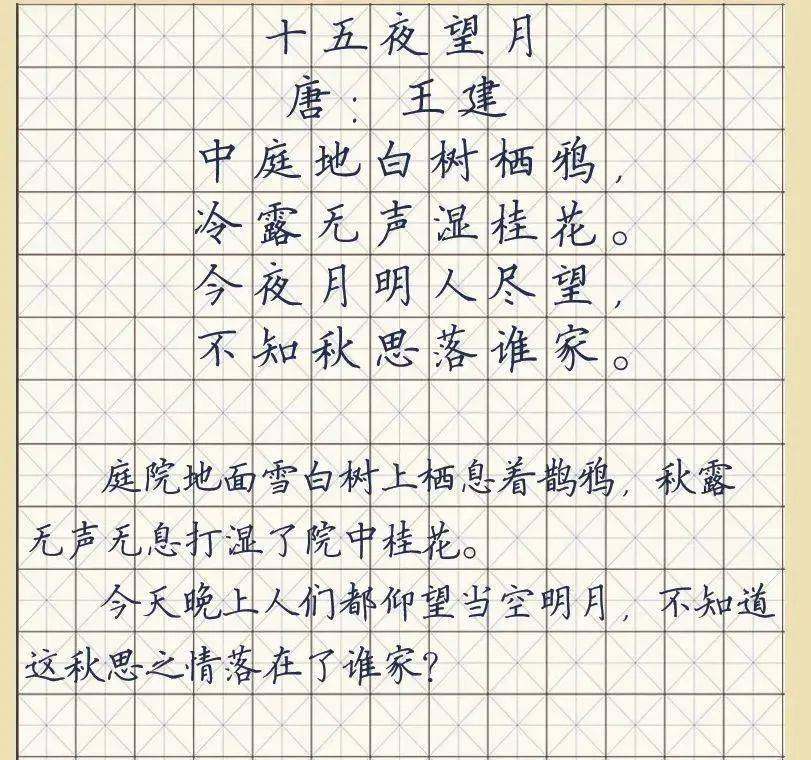 十五夜望月
唐：王建
中庭地白树栖鸦，
冷露无声湿桂花。
今夜月明人尽望，
不知秋思落谁家。
庭院地面雪白树上栖息着鹊鸦，秋露
无声无息打湿了院中桂花。
今天晚上人们都仰望当空明月，不知道
这秋思之情落在了谁家？